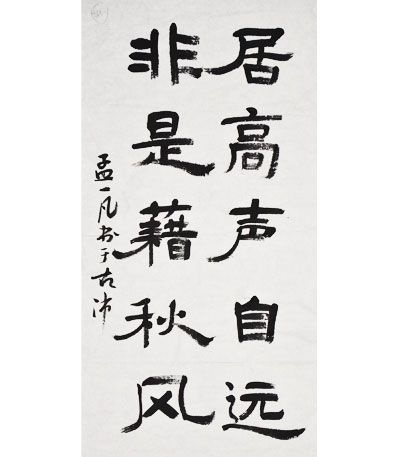 居高声自远
非是藉秋风
孟一凡书于古沛